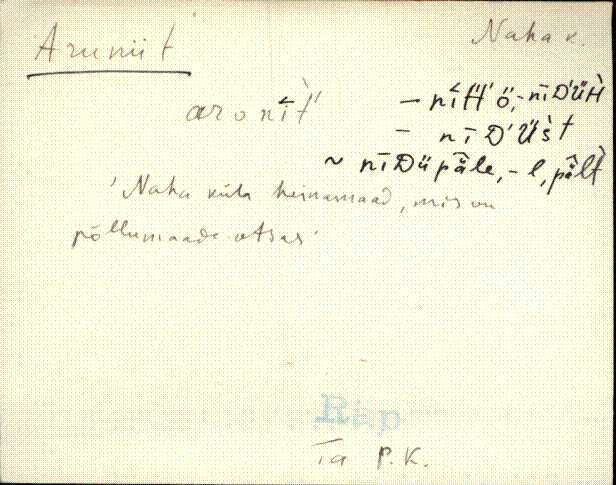 Aruniit Naha k.
aronìt' – níttö, -nīDüH
– nīD'üst
~ nīDü päle, -l, pält
'Naha küla heinamaad, mis on
põllumaade otsas'
Räp
Ta P.K.